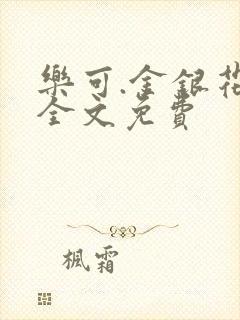 樂可.金銀花
全文免費
楓霜